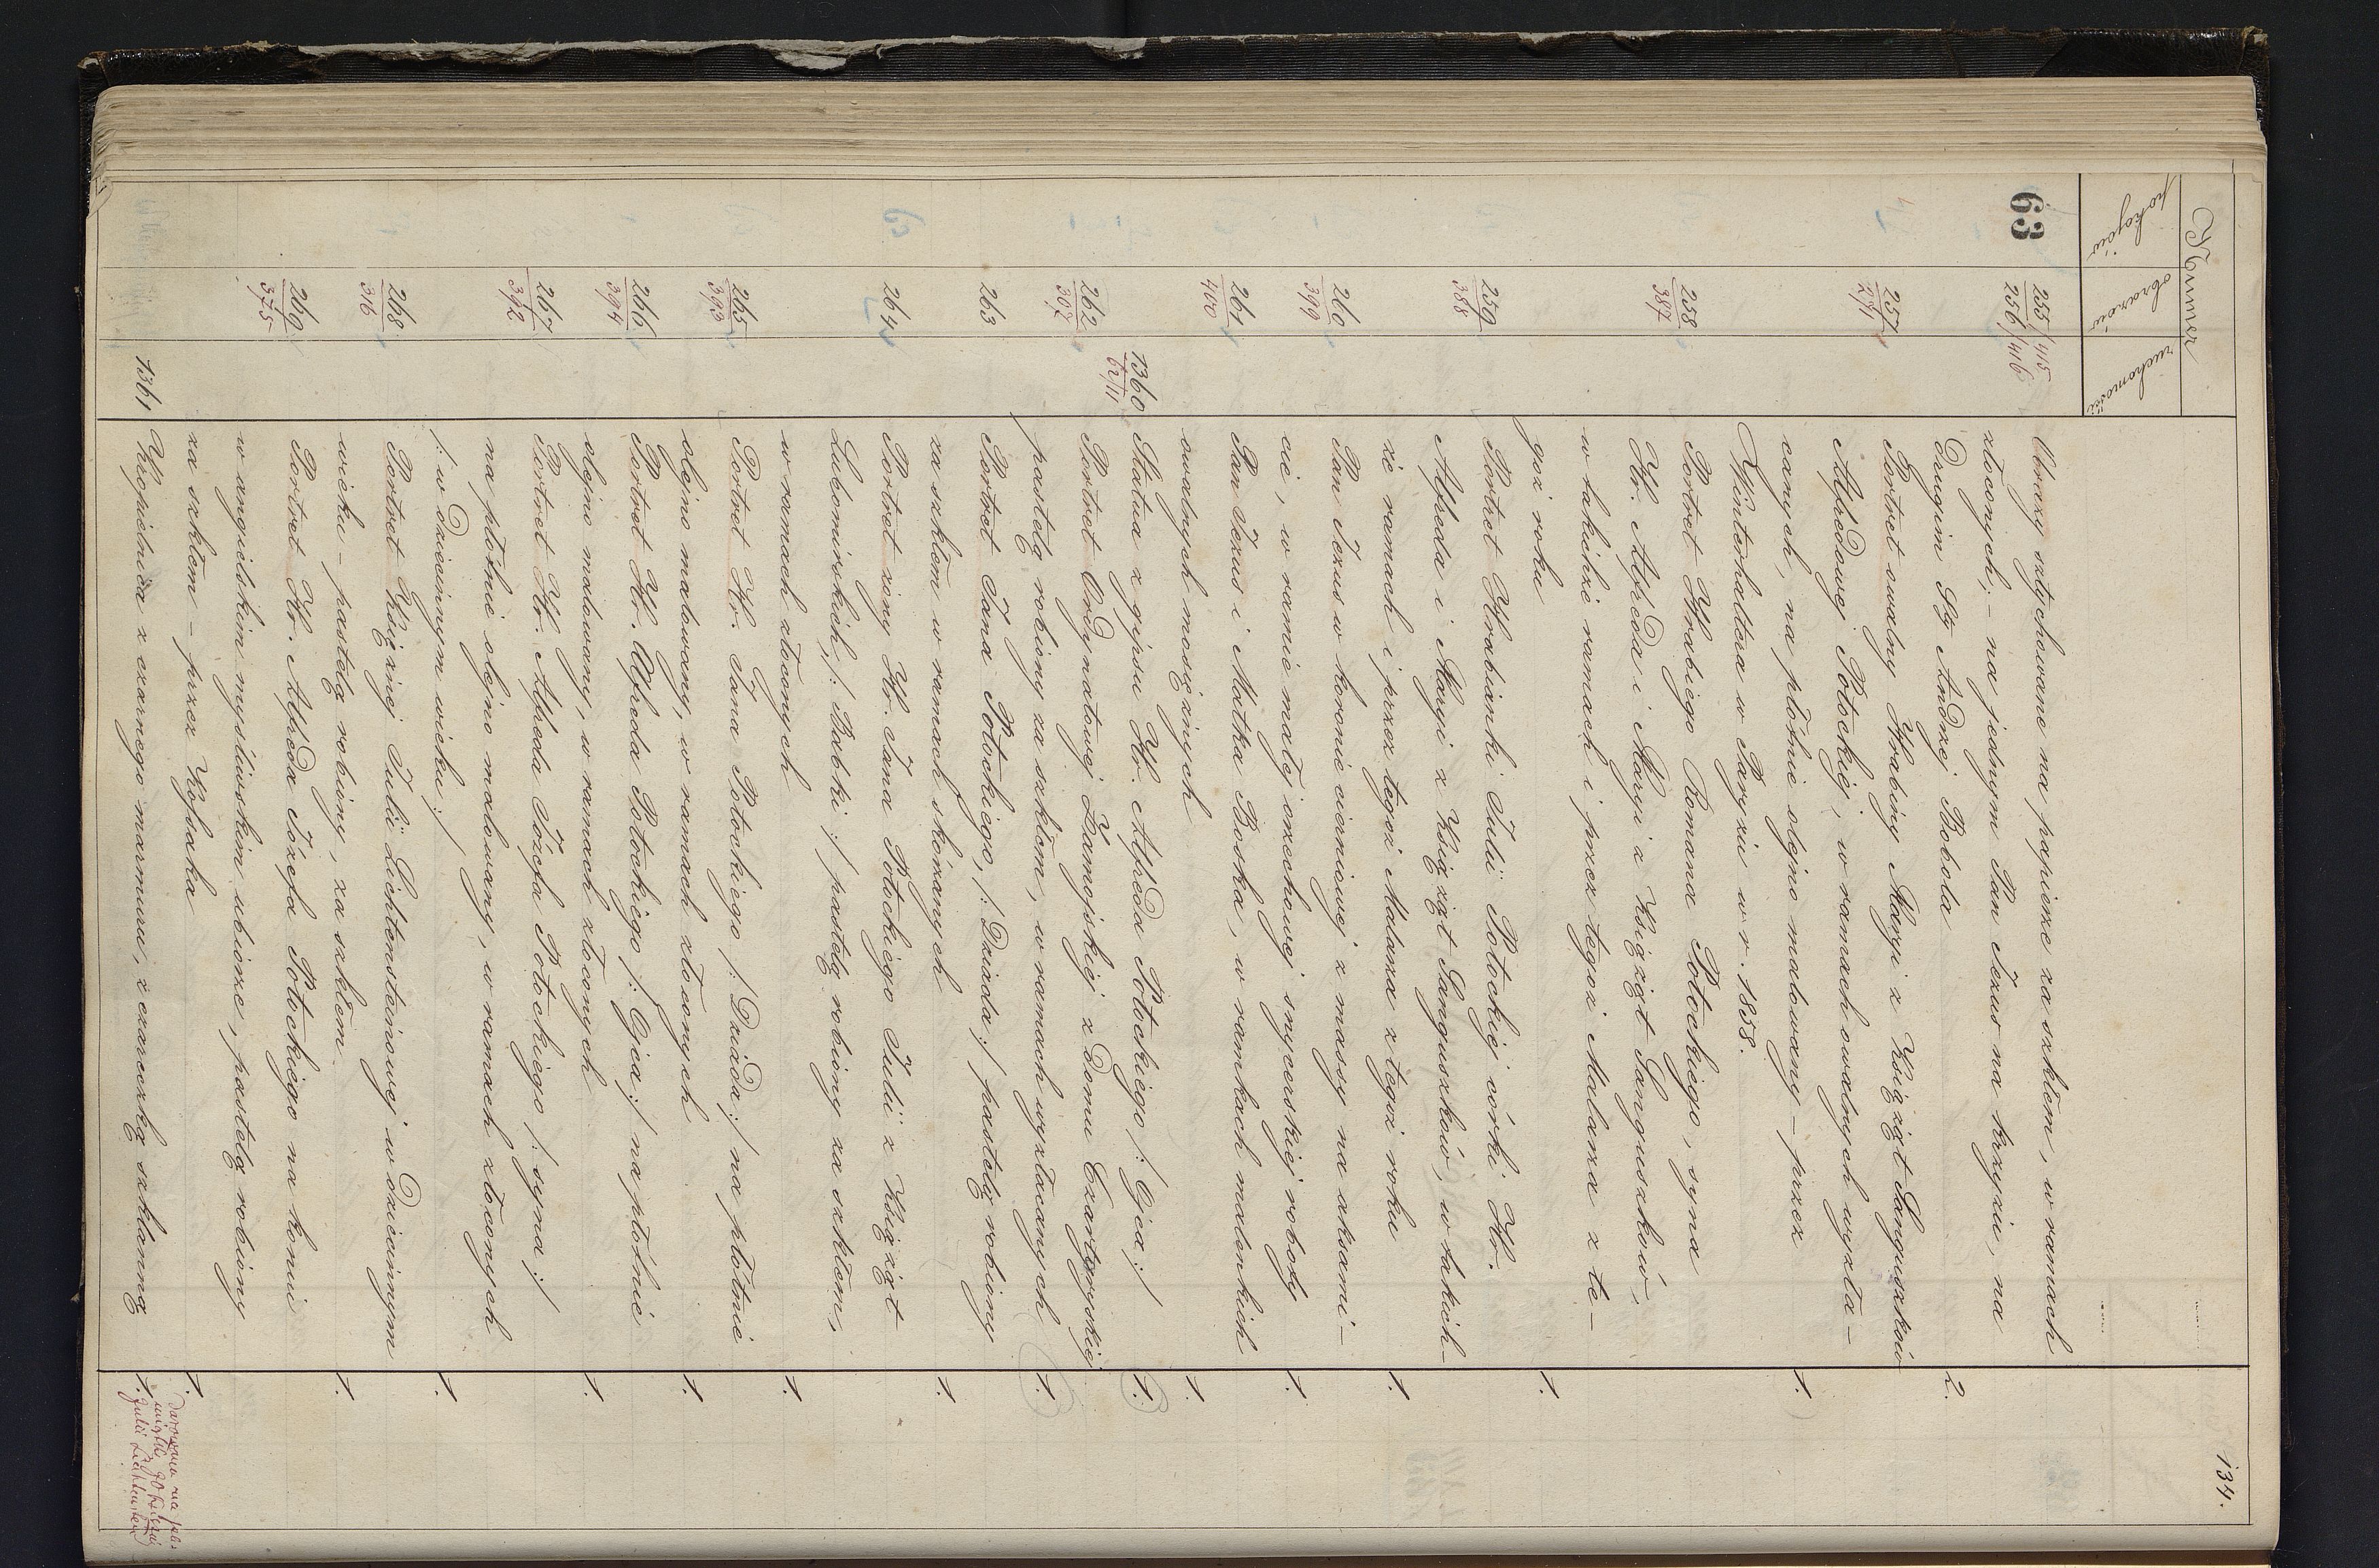 134.
Numer
pokojów obrazów ruchomości
63 255/415 Obrazy sztychowane na papierze za szkłem, w ramach
256/416 złoconych; - na jednym Pan Jezus na krzyżu, na
Drugim Sty Andrzej Bobola 2.
257 Portret owalny Hrabiny Maryi z Książąt Sanguszków
271 Alfredowej Potockiej, w ramach owalnych wyzła-
canych, na płótnie olejno malowany - przez
Winterhaltera w Paryżu w r. 1858. 1.
258 Portret Hrabiego Romana Potockiego, syna
387 Hr. Alfreda i Maryi z Książąt Sanguszków,
w takichże ramach i przez tegoż Malarza z te-
goż roku 1.
259 Portret Hrabianki Julii Potockiej córki Hr.
388 Alfreda i Maryi z Książąt Sanguszków, w takich-
że ramach i przez tegoż Malarza z tegoż roku 1.
260 Pan Jezus w koronie cierniowej z massy na aksami-
399 cie, w ramie małej orzechowej snycerskiej roboty 1.
261 Pan Jezus i Matka Boska, w ramkach maleńkich
400 owalnych mosiężnych 1.
1360 Statua z gipsu Hr. Alfreda Potockiego /: Ojca :/ 1.
62/11
262 Portret Ordynatowej Zamojskiej z Domu Czartoryskiej
307 pastelą robiony za szkłem, w ramach wyzłacanych 1.
263 Portret Jana Potockiego, /: Dziada :/ pastelą robiony
za szkłem w ramach skórzanych 1.
264 Portret żony Hr. Jana Potockiego Julii z Książąt
Lubomirskich, /: Babki :/ pastelą robiony za szkłem,
w ramach złoconych 1.
265 Portret Hr. Jana Potockiego /: Dziada :/ na płótnie
393 olejno malowany, w ramach złoconych 1.
266 Portret Hr. Alfreda Potockiego /: Ojca :/ na płótnie
394 olejno malowany, w ramach złoconych 1.
267 Portret Hr. Alfreda Józefa Potockiego /: syna :/
392 na płótnie olejno malowany, w ramach złoconych
/: w dziecinnym wieku :/ 1.
268 Portret Księżnej Julii Lichtensteinowej w dziecinnym
316 wieku - pastelą robiony, za szkłem 1.
269 Portret Hr. Alfreda Józefa Potockiego na koniu
375 w angielskim myśliwskim ubiorze, pastelą robiony
za szkłem - przez Kossaka 1.
1361 Kropielnica z czarnego marmuru, z czareczką szklanną 1.
Darowana na
Julii Lichtenstein